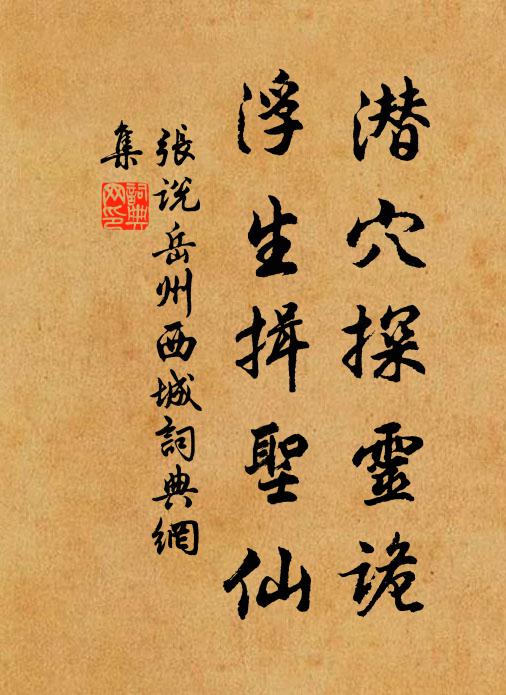 潛穴探靈詭
浮生揖聖仙
張說岳州西城詞典網
集
詞典网印